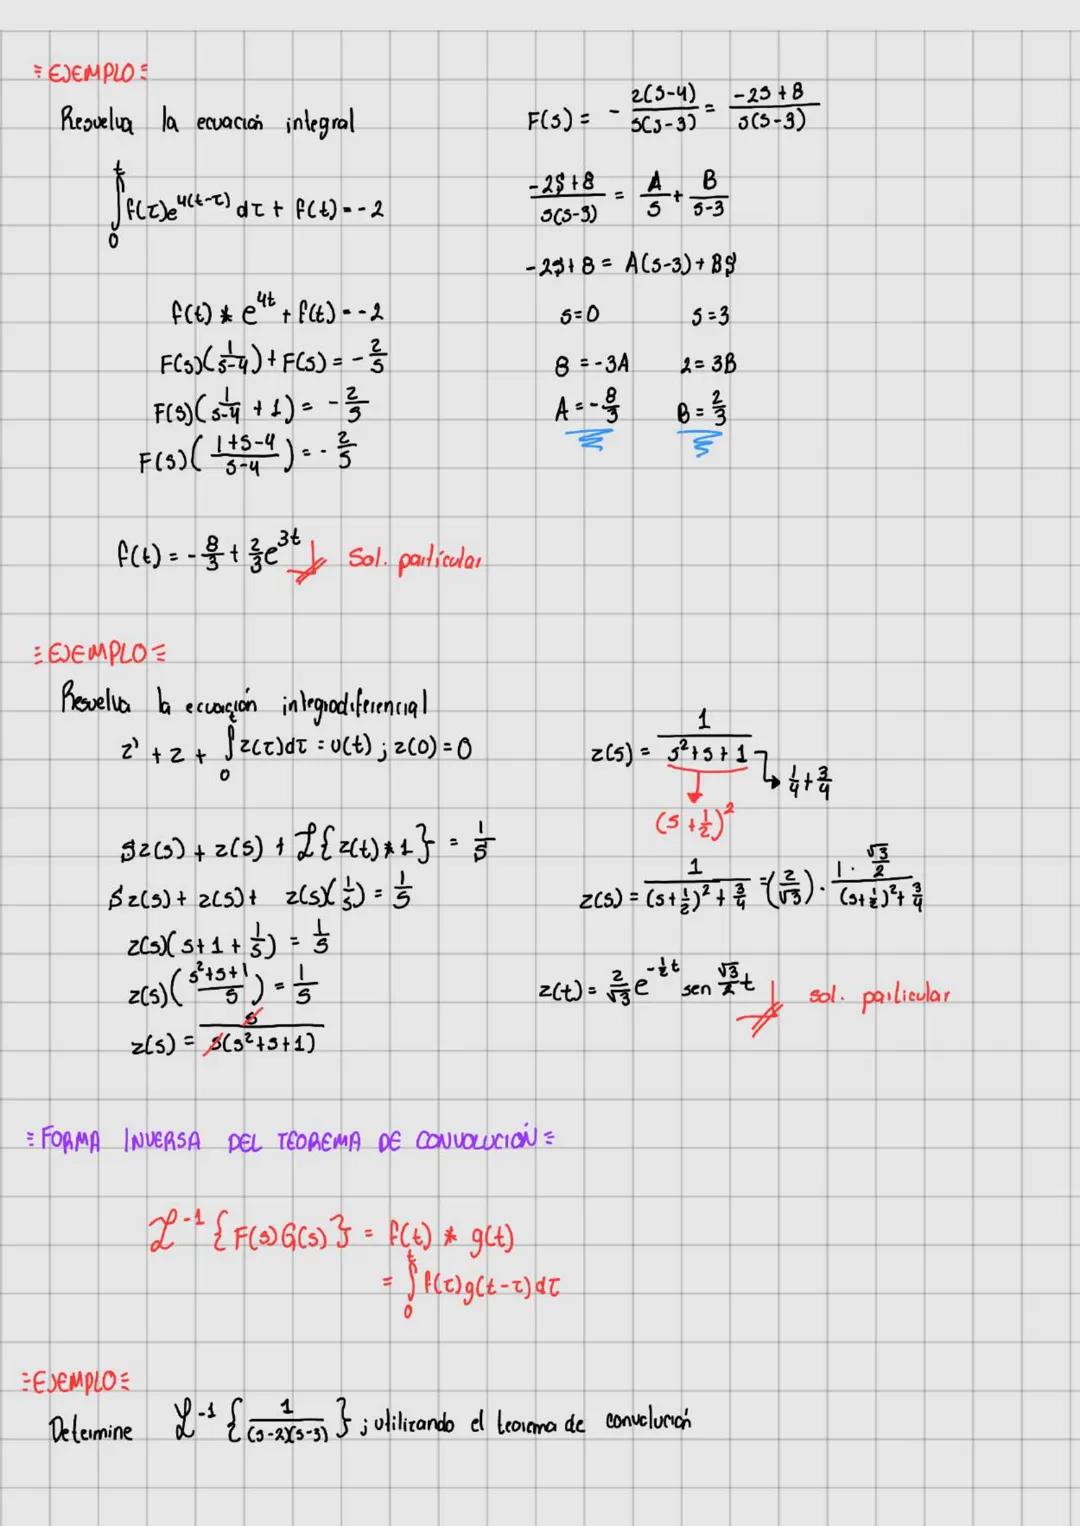 = EJEMPLO =
Resuelva la ecuación integral
∫₀ᵗ f(τ)e^{4(t-τ)} dτ + f(t) = -2
f(t) * e^{4t} + f(t) = -2
F(s)(1/(s-4)) + F(s) = -2/s
F(s)(1/(s-4) + 1) = -2/s
F(s)((1+s-4)/(s-4)) = -2/s
F(s) = -2(s-4)/(s(s-3)) = (-2s+8)/(s(s-3))
(-2s+8)/(s(s-3)) = A/s + B/(s-3)
-2s+8 = A(s-3) + Bs
s=0 s=3
8 = -3A 2 = 3B
A = -8/3 B = 2/3
f(t) = -8/3 + 2/3 e^{3t} Sol. particular
= EJEMPLO =
Resuelva la ecuación integrodiferencial
z' + z + ∫₀ᵗ z(τ)dτ = u(t) ; z(0) = 0
sz(s) + z(s) + ℒ{z(t)*1} = 1/s
sz(s) + z(s) + z(s)(1/s) = 1/s
z(s)(s+1+1/s) = 1/s
z(s)((s²+s+1)/s) = 1/s
z(s) = s/(s(s²+s+1))
z(s) = 1/(s²+s+1) → 1/4 + 3/4
(s+1/2)²
z(s) = 1/((s+1/2)²+3/4) = (2/√3) · (1·√3/2)/((s+1/2)²+3/4)
z(t) = 2/√3 e^{-1/2 t} sen √3/2 t sol. particular
= FORMA INVERSA DEL TEOREMA DE CONVOLUCIÓN =
ℒ⁻¹{F(s)G(s)} = f(t) * g(t)
= ∫₀ᵗ f(τ)g(t-τ)dτ
= EJEMPLO =
Determine ℒ⁻¹{1/((s-2)(s-3))} ; utilizando el teorema de convolución